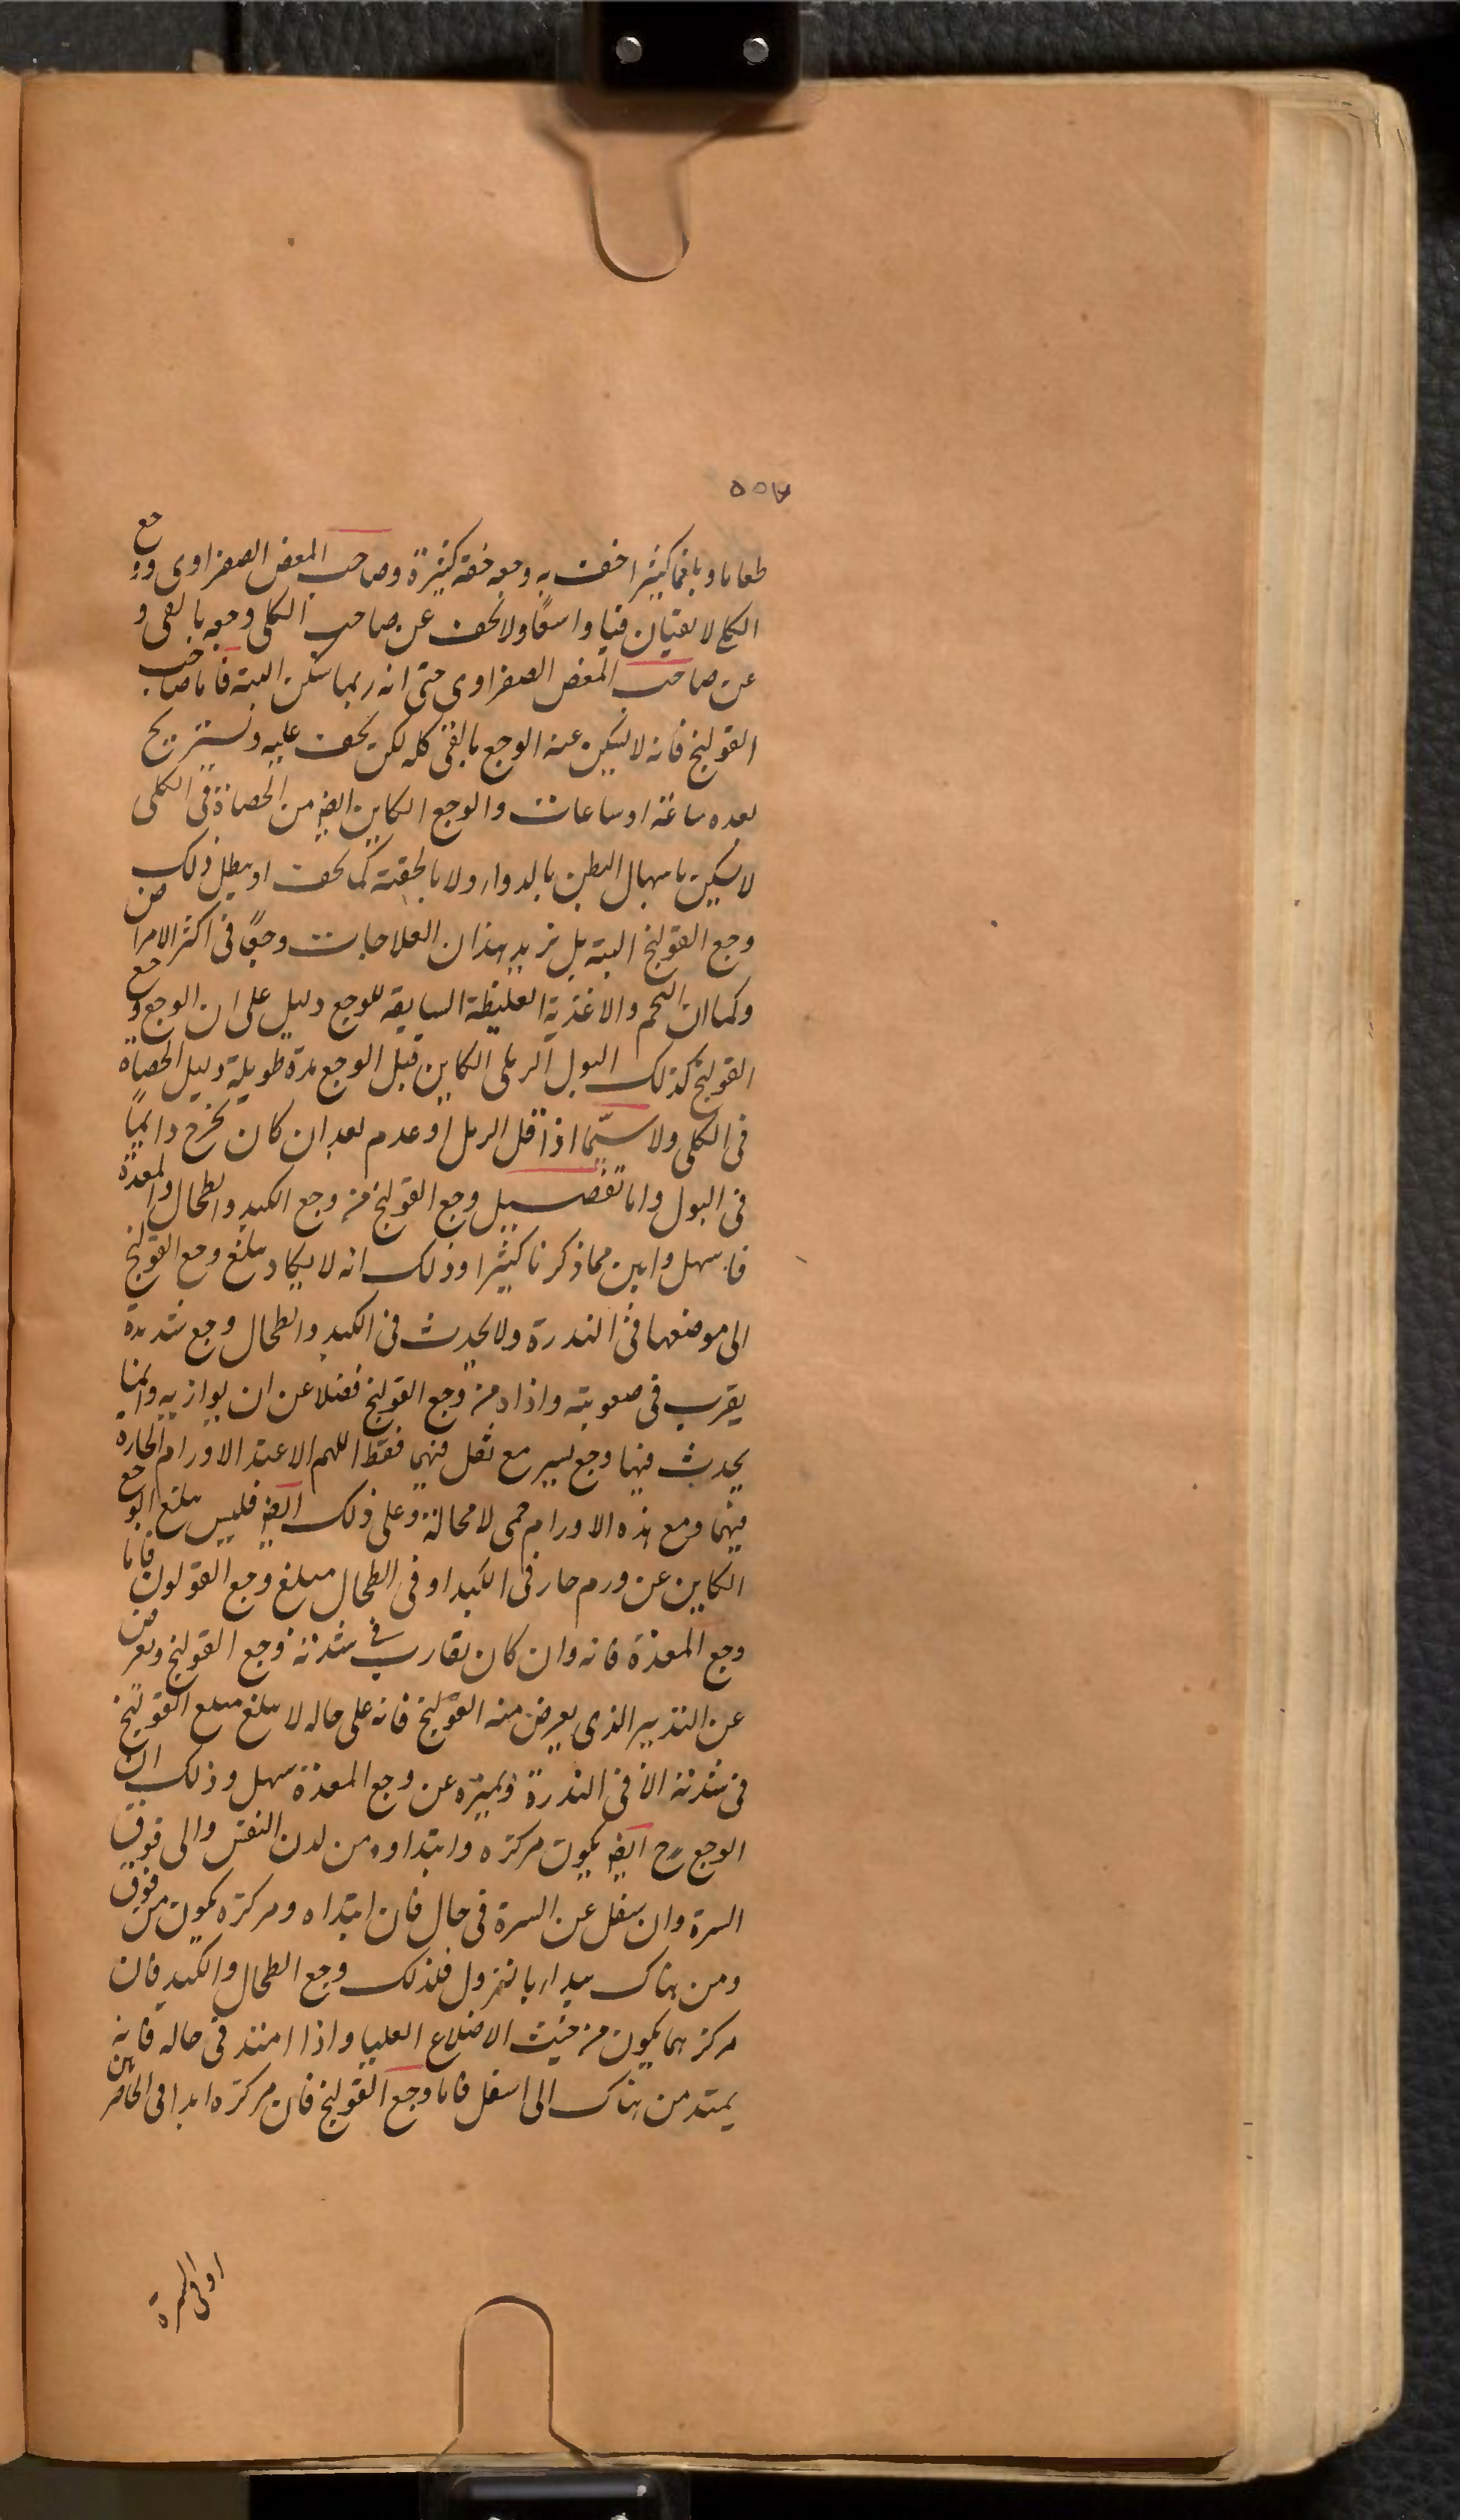 ٥٥٧
طعاما وبلغما كثيرا خفت به وجعه خفة كثيرة وصاحب المغص الصفراوى ووجع
الكلى لا يقيان قيا واسعًا ولا يخف عن صاحب الكلى وجعه بالقى و
عن صاحب المغص الصفراوى حتى انه ربما سكن البتة فاما صاحب
القولنج فانه لا يسكن عنه الوجع بالقى كله لكن يخف عليه ويستريح
بعده ساعة او ساعات والوجع الكاين ايضا من الحصاة فى الكلى
لا يسكن باسهال البطن بالدوا ولا بالحقنة كما يخف او يبطل ذلك من
وجع القولنج البتة بل تزيد هذان العلاجات وجعًا فى اكثر الامر
وكما ان التخم والاغذية الغليظة السابقة للوجع دليل على ان الوجع وجع
القولنج كذلك البول الرملى الكاين قبل الوجع مدة طويلة دليل الحصاة
فى الكلى ولا سيّما اذا قل الرمل او عدم بعد ان كان يخرج دايمًا
فى البول واما تفصيل وجع القولنج من وجع الكبد والطحال والمعدة
فاسهل وابين مما ذكرنا كثيرا وذلك انه لا يكاد يبلغ وجع القولنج
الى موضعها فى الندرة ولا يحدث فى الكبد والطحال وجع شديدة
يقرب فى صعوبته واذاه من وجع القولنج فضلا عن ان يوازيه وانما
يحدث فيها وجع يسير مع ثقل فيهما فقط اللهم الا عند الاورام الحارة
فيهما ومع هذه الاورام حمى لا محالة وعلى ذلك ايضا فليس يبلغ الوجع
الكاين عن ورم حار فى الكبد او فى الطحال مبلغ وجع القولون فاما
وجع المعدة فانه وان كان يقارب فى شدته وجع القولنج ويعرض
عن التدبير الذى يعرض منه القولنج فانه على حاله لا يبلغ مبلغ القولنج
فى شدته الا فى الندرة وتميزه عن وجع المعدة سهل وذلك ان
الوجع ح ايضا يكون مركزه وابتداوه من لدن القص والى فوق
السرة وان سفل عن السرة فى حال فان ابتداه ومركزه يكون من فوق
ومن هناك يبدا بالنزول فلذلك وجع الطحال والكبد فان
مركزهما يكون من حيث الاضلاع العليا واذا امتد فى حاله فانه
يمتد من هناك الى اسفل فاما وجع القولنج فان مركزه ابدا فى الخاصرتين
او فى السرة